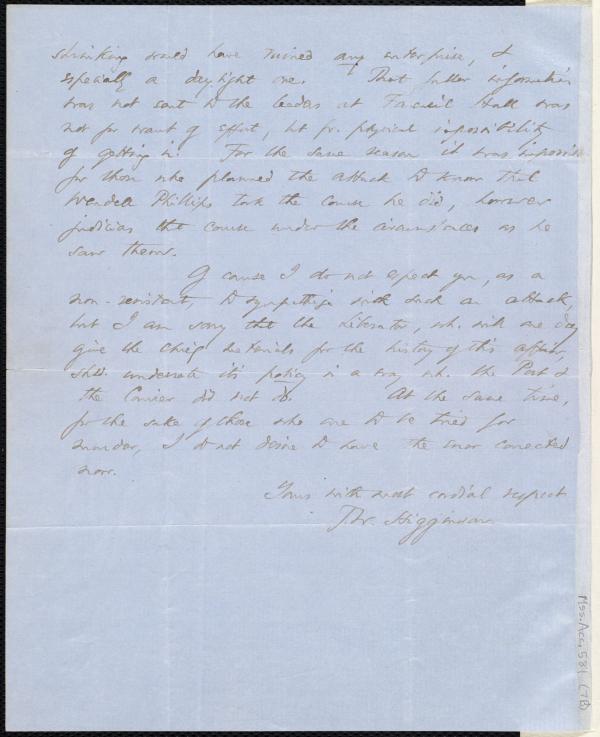 shrinking would have ruined any enterprise, &
especially a daylight one. That fuller information
was not sent to the leaders at Faneuil Hall was
not for want of effort, but for physical impossibility
of getting in. For the same reason it was impossible
for those who planned the attack to know that
Wendell Phillips took the course he did, however
judicious the course under the circumstances as he
saw them.
Of course I do not expect you, as a
non-resistant, to sympathize with such an attack,
but I am sorry that the Liberator, wh. will one day
give the chief materials for the history of this affair,
shd. underrate its policy in a way wh. the Post &
the Courier did not do. At the same time,
for the sake of those who are to be tried for
murder, I do not desire to have the error corrected
now.
Yours with most cordial respect
T.W. Higginson
Mss. Acc. 581 (78)